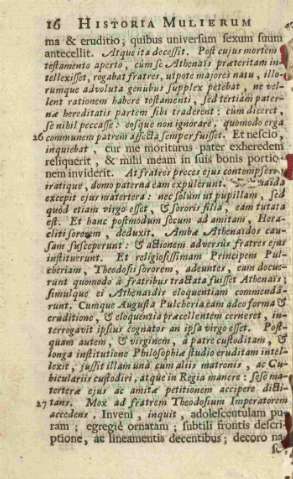 16 HISTORIA MULIERUM
ma & eruditio; quibus universum sexum suum
antecellit. Atque ita decessit. Post ejus mortem
testamento aperto, cum se Athenais præteritam in-
tellexisset, rogabat fratres, utpote majores natu, illo-
rumque advoluta genibus supplex petebat, ne vel-
lent rationem habere testamenti, sed tertiam pater-
næ hereditatis partem sibi traderent: cum diceret,
se nihil peccasse: eosque non ignorare, quomodo erga
26 communem patrem affecta semper fuisset. Et nescio,
inquiebat, cur me moriturus pater exheredem
reliquerit, & mihi meam in suis bonis portio-
nem inviderit. At fratres preces ejus contempsere,
iratique, domo paterna eam expulerunt.
excepit ejus matertera: nec solum ut pupillam, sed
quod etiam virgo esset, & sororis filia, eam tutata
est. Et hanc postmodum secum ad amitam, Hera-
cliti sororem, deduxit. Ambæ Athenaidos cau-
sam susceperunt: & actionem adversus fratres ejus
instituerunt. Et religiosissimam Principem Pul-
cheriam, Theodosii sororem, adeuntes, eum docue-
runt quomodo à fratribus tractata fuisset Athenais;
simulque ei Athenaidis eloquentiam commendâ-
runt. Cumque Augusta Pulcheria eam adeo formâ &
eruditione, & eloquentia præcellentem cerneret, in-
terrogavit ipsius cognatas an ipsa virgo esset. Post-
quam autem, & virginem, à patre custoditam, &
longa institutione Philosophiæ studio eruditam intel-
lexit, jussit illam unà cum aliis matronis, ac Cu-
biculariis custodiri, atque in Regia manere: sese ma-
terteræ ejus ac amitæ petitionem accipere dicti-
27 tans. Mox ad fratrem Theodosium Imperatorem
accedens, Inveni, inquit, adolescentulam pu-
ram; egregiè ornatam; subtili frontis descri-
ptione, ac lineamentis decentibus; decoro na-